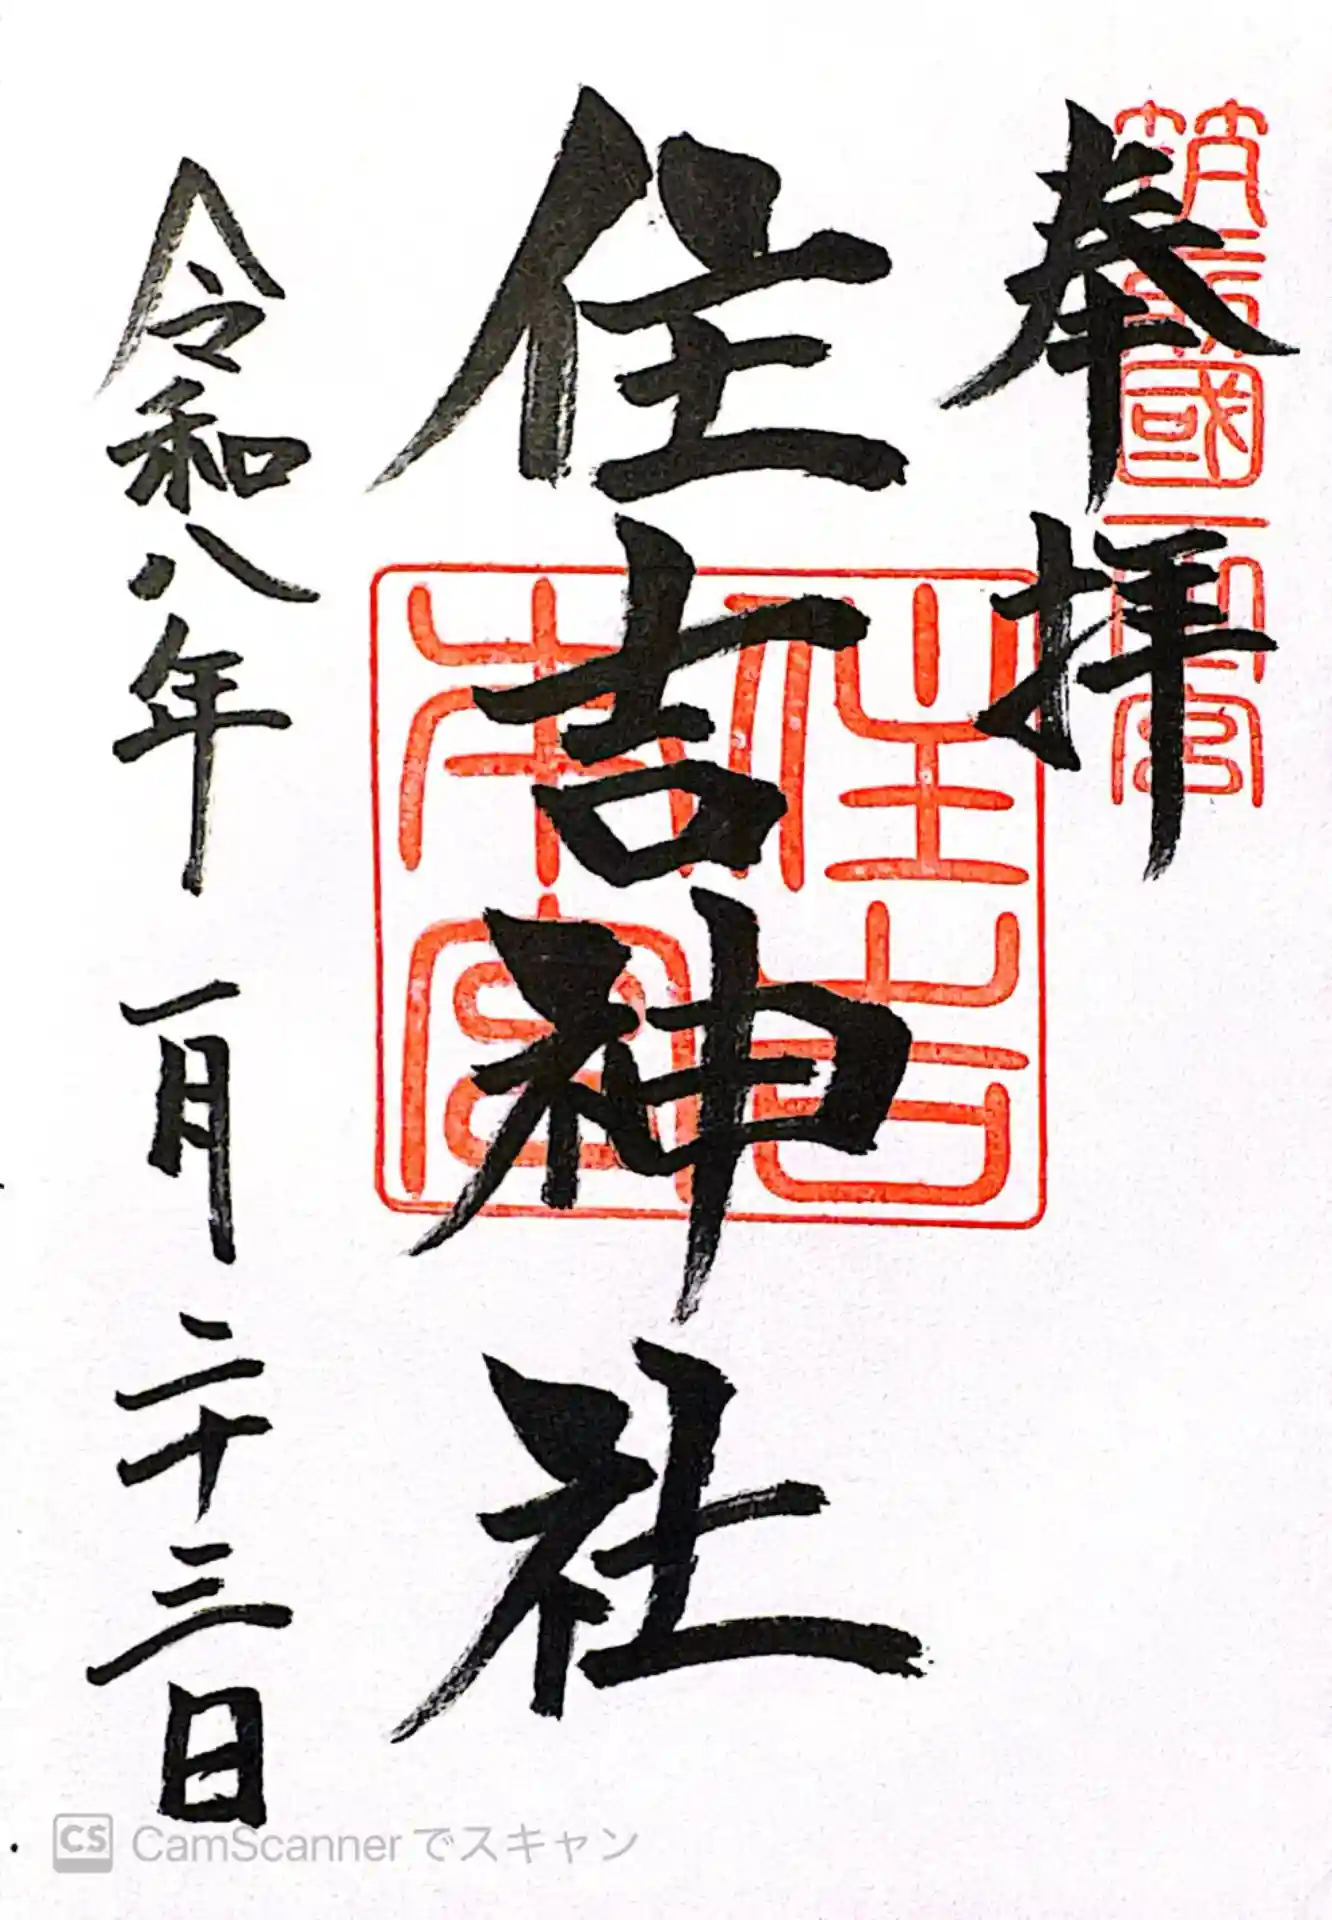 奉拝
筑前國一之宮
住吉神社
住吉本宮
令和八年 一月 二十三日
CS CamScannerでスキャン